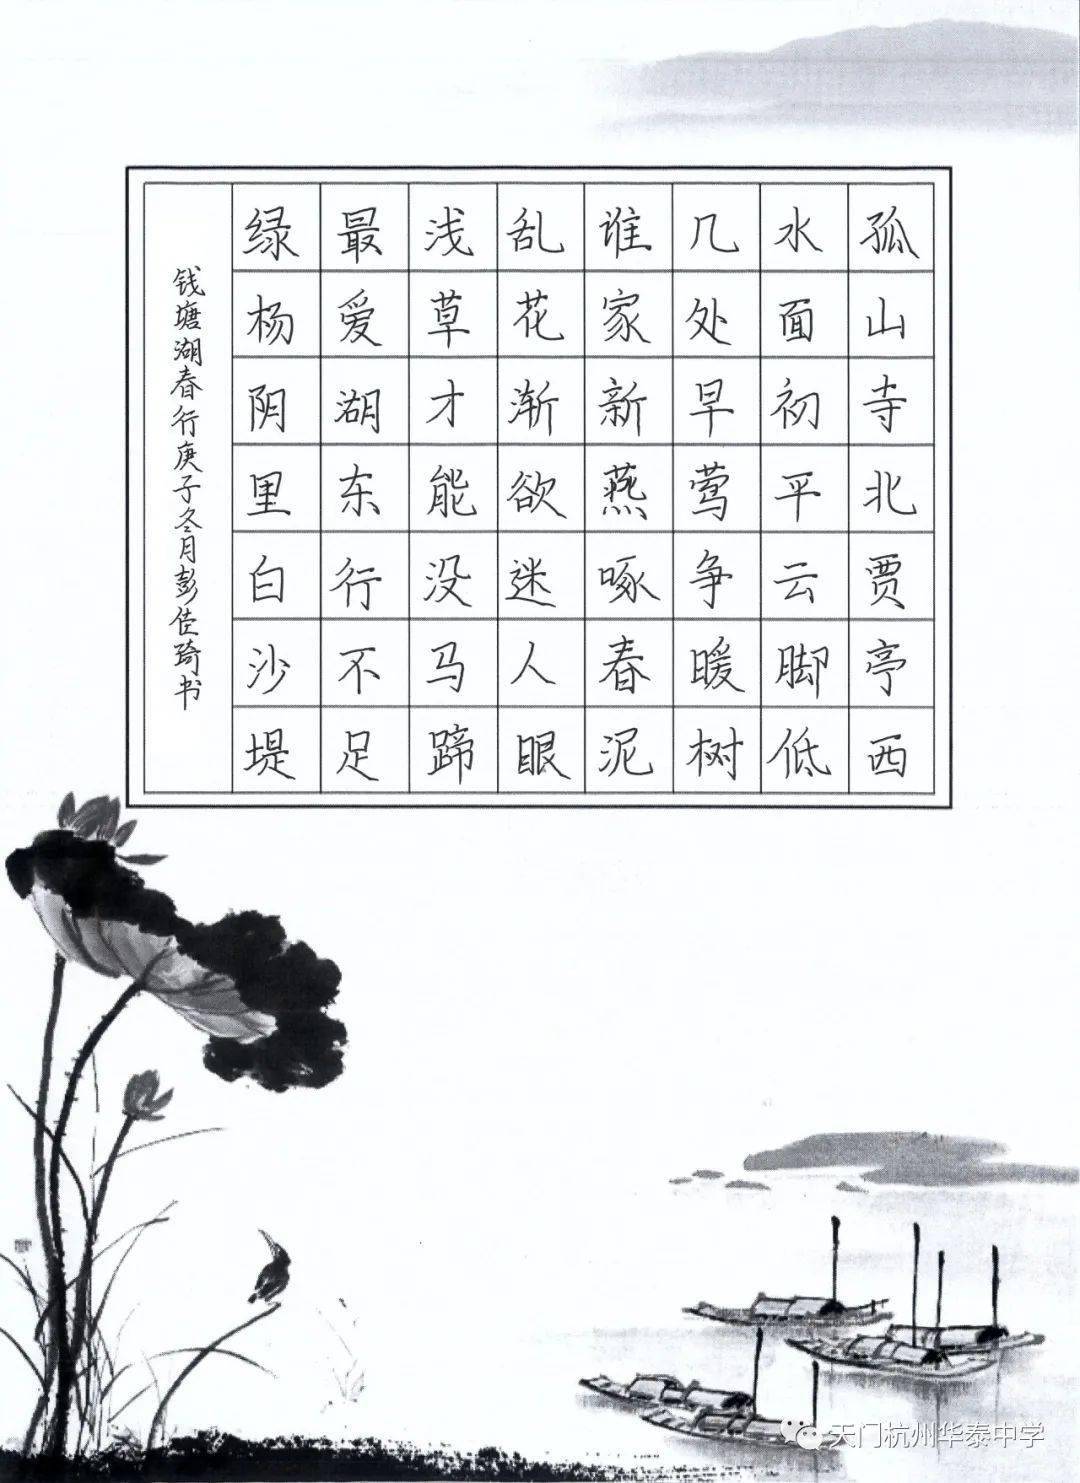 孤山寺北贾亭西
水面初平云脚低
几处早莺争暖树
谁家新燕啄春泥
乱花渐欲迷人眼
浅草才能没马蹄
最爱湖东行不足
绿杨阴里白沙堤
钱塘湖春行庚子冬月彭佳琦书
天门杭州华泰中学